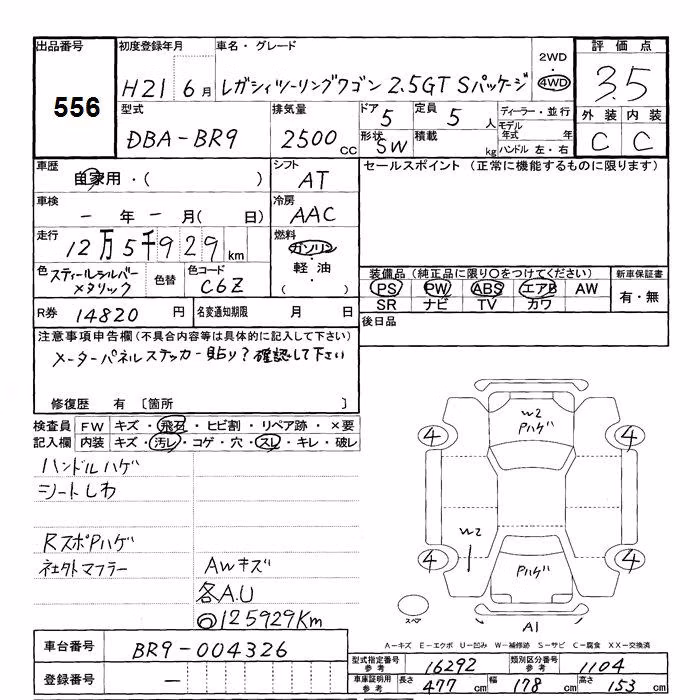 出品番号 初度登録年月 車名・グレード 2WD 評価点
556 H21年 6月 レガシィツーリングワゴン 2.5GT Sパッケージ 4WD 3.5
型式 排気量 ドア 5 定員 5人 ディーラー・並行 外装 内装
DBA-BR9 2500CC 形状 SW 積載 kg モデル年式 年 C C
ハンドル 左・右
車歴 自家用・( ) シフト AT セールスポイント (正常に機能するものに限ります)
車検 ー年ー月( 日) 冷房 AAC
走行 12万5千929km 燃料 ガソリン・軽油・( )
色 スティールシルバーメタリック 色替 色コード C6Z
装備品 (純正品に限り○をつけてください) 新車保証書
PS PW ABS エアB AW 有・無
SR ナビ TV カワ
R券 14820円 名変通知期限 月 日 後日品
注意事項申告欄 (不具合内容等は具体的に記入して下さい)
メーターパネルステッカー貼り?確認して下さい
修復歴 有 〔箇所 〕
検査員 FW キズ・飛石・ヒビ割・リペア跡・×要
記入欄 内装 キズ・汚レ・コゲ・穴・スレ・キレ・破レ
ハンドルハゲ
シートしわ
RスポPハゲ
社外マフラー AWキズ
各A.U
◎125929Km
W2
Pハゲ
4 4
W2
4 4
Pハゲ
スペア
A1
A-キズ E-エクボ U-凹み W-補修跡 S-サビ C-腐食 XX-交換済
車台番号 BR9-004326
登録番号 ー
型式指定番号 参考 16292 類別区分番号 参考 1104
車庫証明用 参考 長さ 477cm 幅 178cm 高さ 153cm